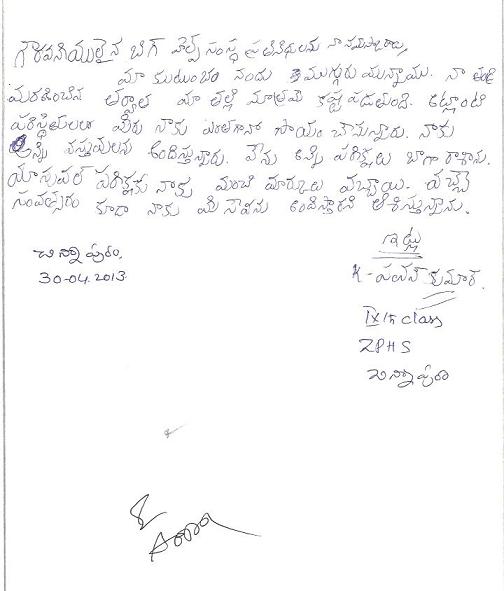 గౌరవనీయులైన బిగ్ హెల్ప్ సంస్థ ప్రతినిధులకు నా నమస్కారాలు,
మా కుటుంబం నందు ముగ్గురు యున్నాము. నా తండ్రి
మరణించిన తర్వాత మా తల్లి మాత్రమే కష్ట పడుతుంది. ఇట్లాంటి
పరిస్థితులలో మీరు నాకు ఎంతగానో సాయం చేసున్నారు. నాకు
అన్ని వస్తువులను అందిస్తున్నారు. నేను అన్ని పరిక్షలు బాగా రాశాను.
యాన్యువల్ పరిక్షలకు నాకు మంచి మార్కులు వచ్చాయి. వచ్చే
సంవత్సరం కూడా నాకు మీ సేవను అందిస్తారని ఆశిస్తున్నాను.
చిన్నాపురం,
30-04.2013
ఇట్లు
K-పవన్ కుమార్.
IXth class
ZPHS
చిన్నాపురం